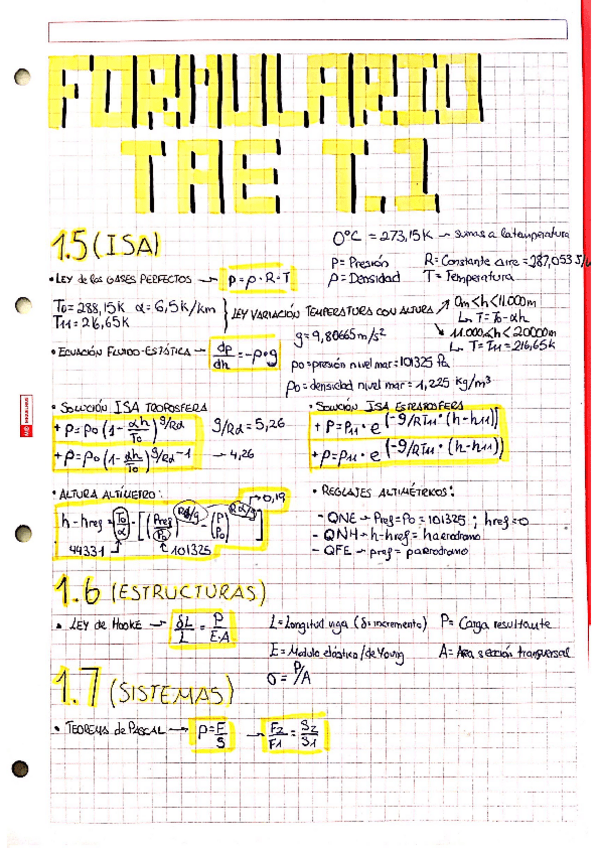 FORMULARIO
TAE T.1
1.5 (ISA)
0°C = 273,15K → sumas a la temperatura
P = Presión R = Constante aire = 287,053 J/
ρ = Densidad T = Temperatura
• LEY de los GASES PERFECTOS → P = ρ · R · T
T0 = 288,15K α = 6,5k/km } LEY VARIACIÓN TEMPERATURA CON ALTURA ↗ 0m<h<11.000m
T11 = 216,65K
↳ T = T0 - αh
↘ 11.000<h<20000m
↳ T = T11 = 216,65k
g = 9,80665 m/s²
• ECUACIÓN FLUIDO-ESTÁTICA → dp/dh = -ρ·g
p0 = presión nivel mar = 101325 Pa
ρ0 = densidad nivel mar = 1,225 kg/m³
• SOLUCIÓN ISA TROPOSFERA
+ P = P0 (1 - αh/T0)^g/Rα g/Rα = 5,26
+ ρ = ρ0 (1 - αh/T0)^g/Rα - 1 → 4,26
• SOLUCIÓN ISA ESTRATOSFERA
+ P = P11 · e^(-g/RT11 · (h-h11))
+ ρ = ρ11 · e^(-g/RT11 · (h-h11))
• ALTURA ALTÍMETRO:
→ 0,19
h - href = T0/α · [(Pref/P0)^Rα/g - (P/P0)^Rα/g]
44331 101325
• REGLAJES ALTIMÉTRICOS:
- QNE → Pref = P0 = 101325 ; href = 0
- QNH → h - href = haerodromo
- QFE → pref = paerodromo
1.6 (ESTRUCTURAS)
• LEY de HOOKE → δL/L = P/E·A
L = Longitud viga (δ = incremento) P = Carga resultante
E = Modulo elástico / de Young A = Area sección transversal
σ = P/A
1.7 (SISTEMAS)
• TEOREMA de PASCAL → P = F/S → F2/F1 = S2/S1